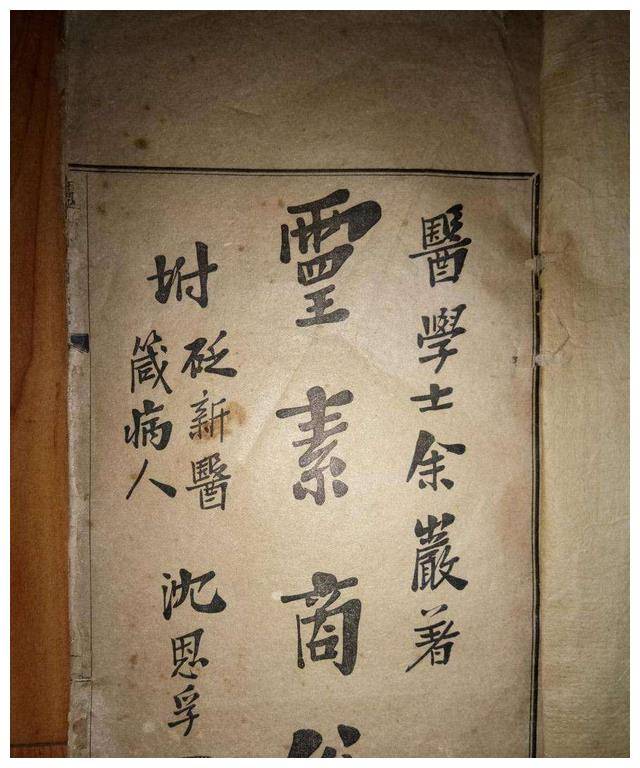 醫學士余巖著
靈素商
坿
砭新醫
箴病人
沈恩孚